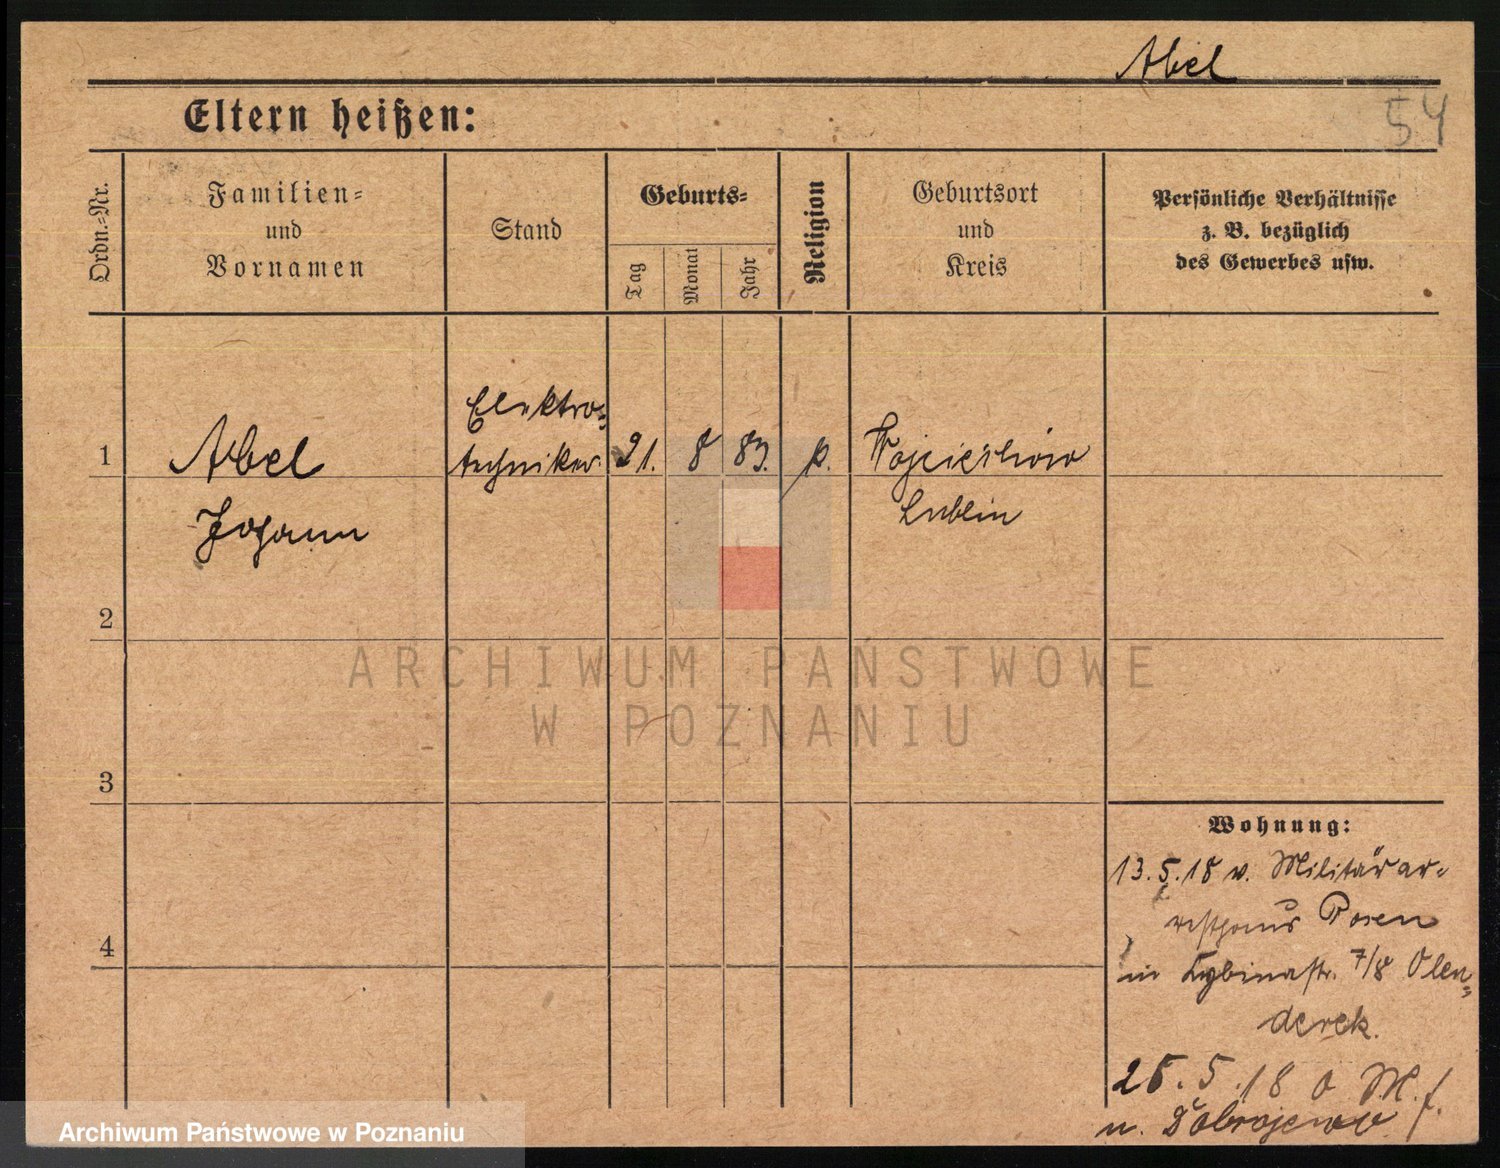 Abel
54
Eltern heißen:
Ordn.-Nr.
Familien-
und
Vornamen
Stand
Geburts-
Tag
Monat
Jahr
Religion
Geburtsort
und
Kreis
Persönliche Verhältnisse
z. B. bezüglich
des Gewerbes usw.
1
Abel
Johann
Elektro-
techniker
21.
8
83.
k.
Wojciechów
Lublin
2
ARCHIWUM PAŃSTWOWE
W POZNANIU
3
4
Wohnung:
13.5.18 v. Militärar-
resthaus Posen
in Cybinastr. 7/8 Olen-
derek.
25.5.18 o M.f.
n. Dobrojewo
Archiwum Państwowe w Poznaniu